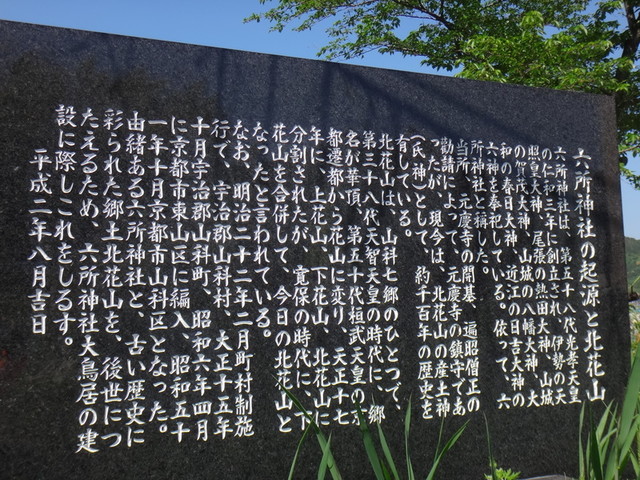 六所神社の起源と北花山
六所神社は、第五十八代光孝天皇
の仁和三年に創立され、伊勢の天
照皇大神、尾張の熱田大神、山城
の賀茂大神、山城の八幡大神、大
和の春日大神、近江の日吉大神の
六神を奉祀している。依って、六
所神社と称した。
当所、元慶寺の開基、遍昭僧正の
勧請によって、元慶寺の鎮守であ
ったが、現今は、北花山の産土神
(氏神)として、約千百年の歴史を
有している。
北花山は、山科七郷のひとつで、
第三十八代天智天皇の時代に、郷
名が華頂、第五十代桓武天皇の京
都遷都から花山に変り、天正十七
年に、上花山、下花山、北花山に
分割されたが、寛保の時代に、下
花山を合併して、今日の北花山と
なったと言われている。
なお、明治二十二年二月町村制施
行で、宇治郡山科村、大正十五年
十月宇治郡山科町、昭和六年四月
に京都市東山区に編入、昭和五十
一年十月京都市山科区となった。
由緒ある六所神社と、古い歴史に
彩られた郷土北花山を、後世につ
たえるため、六所神社大鳥居の建
設に際しこれをしるす。
平成二年八月吉日